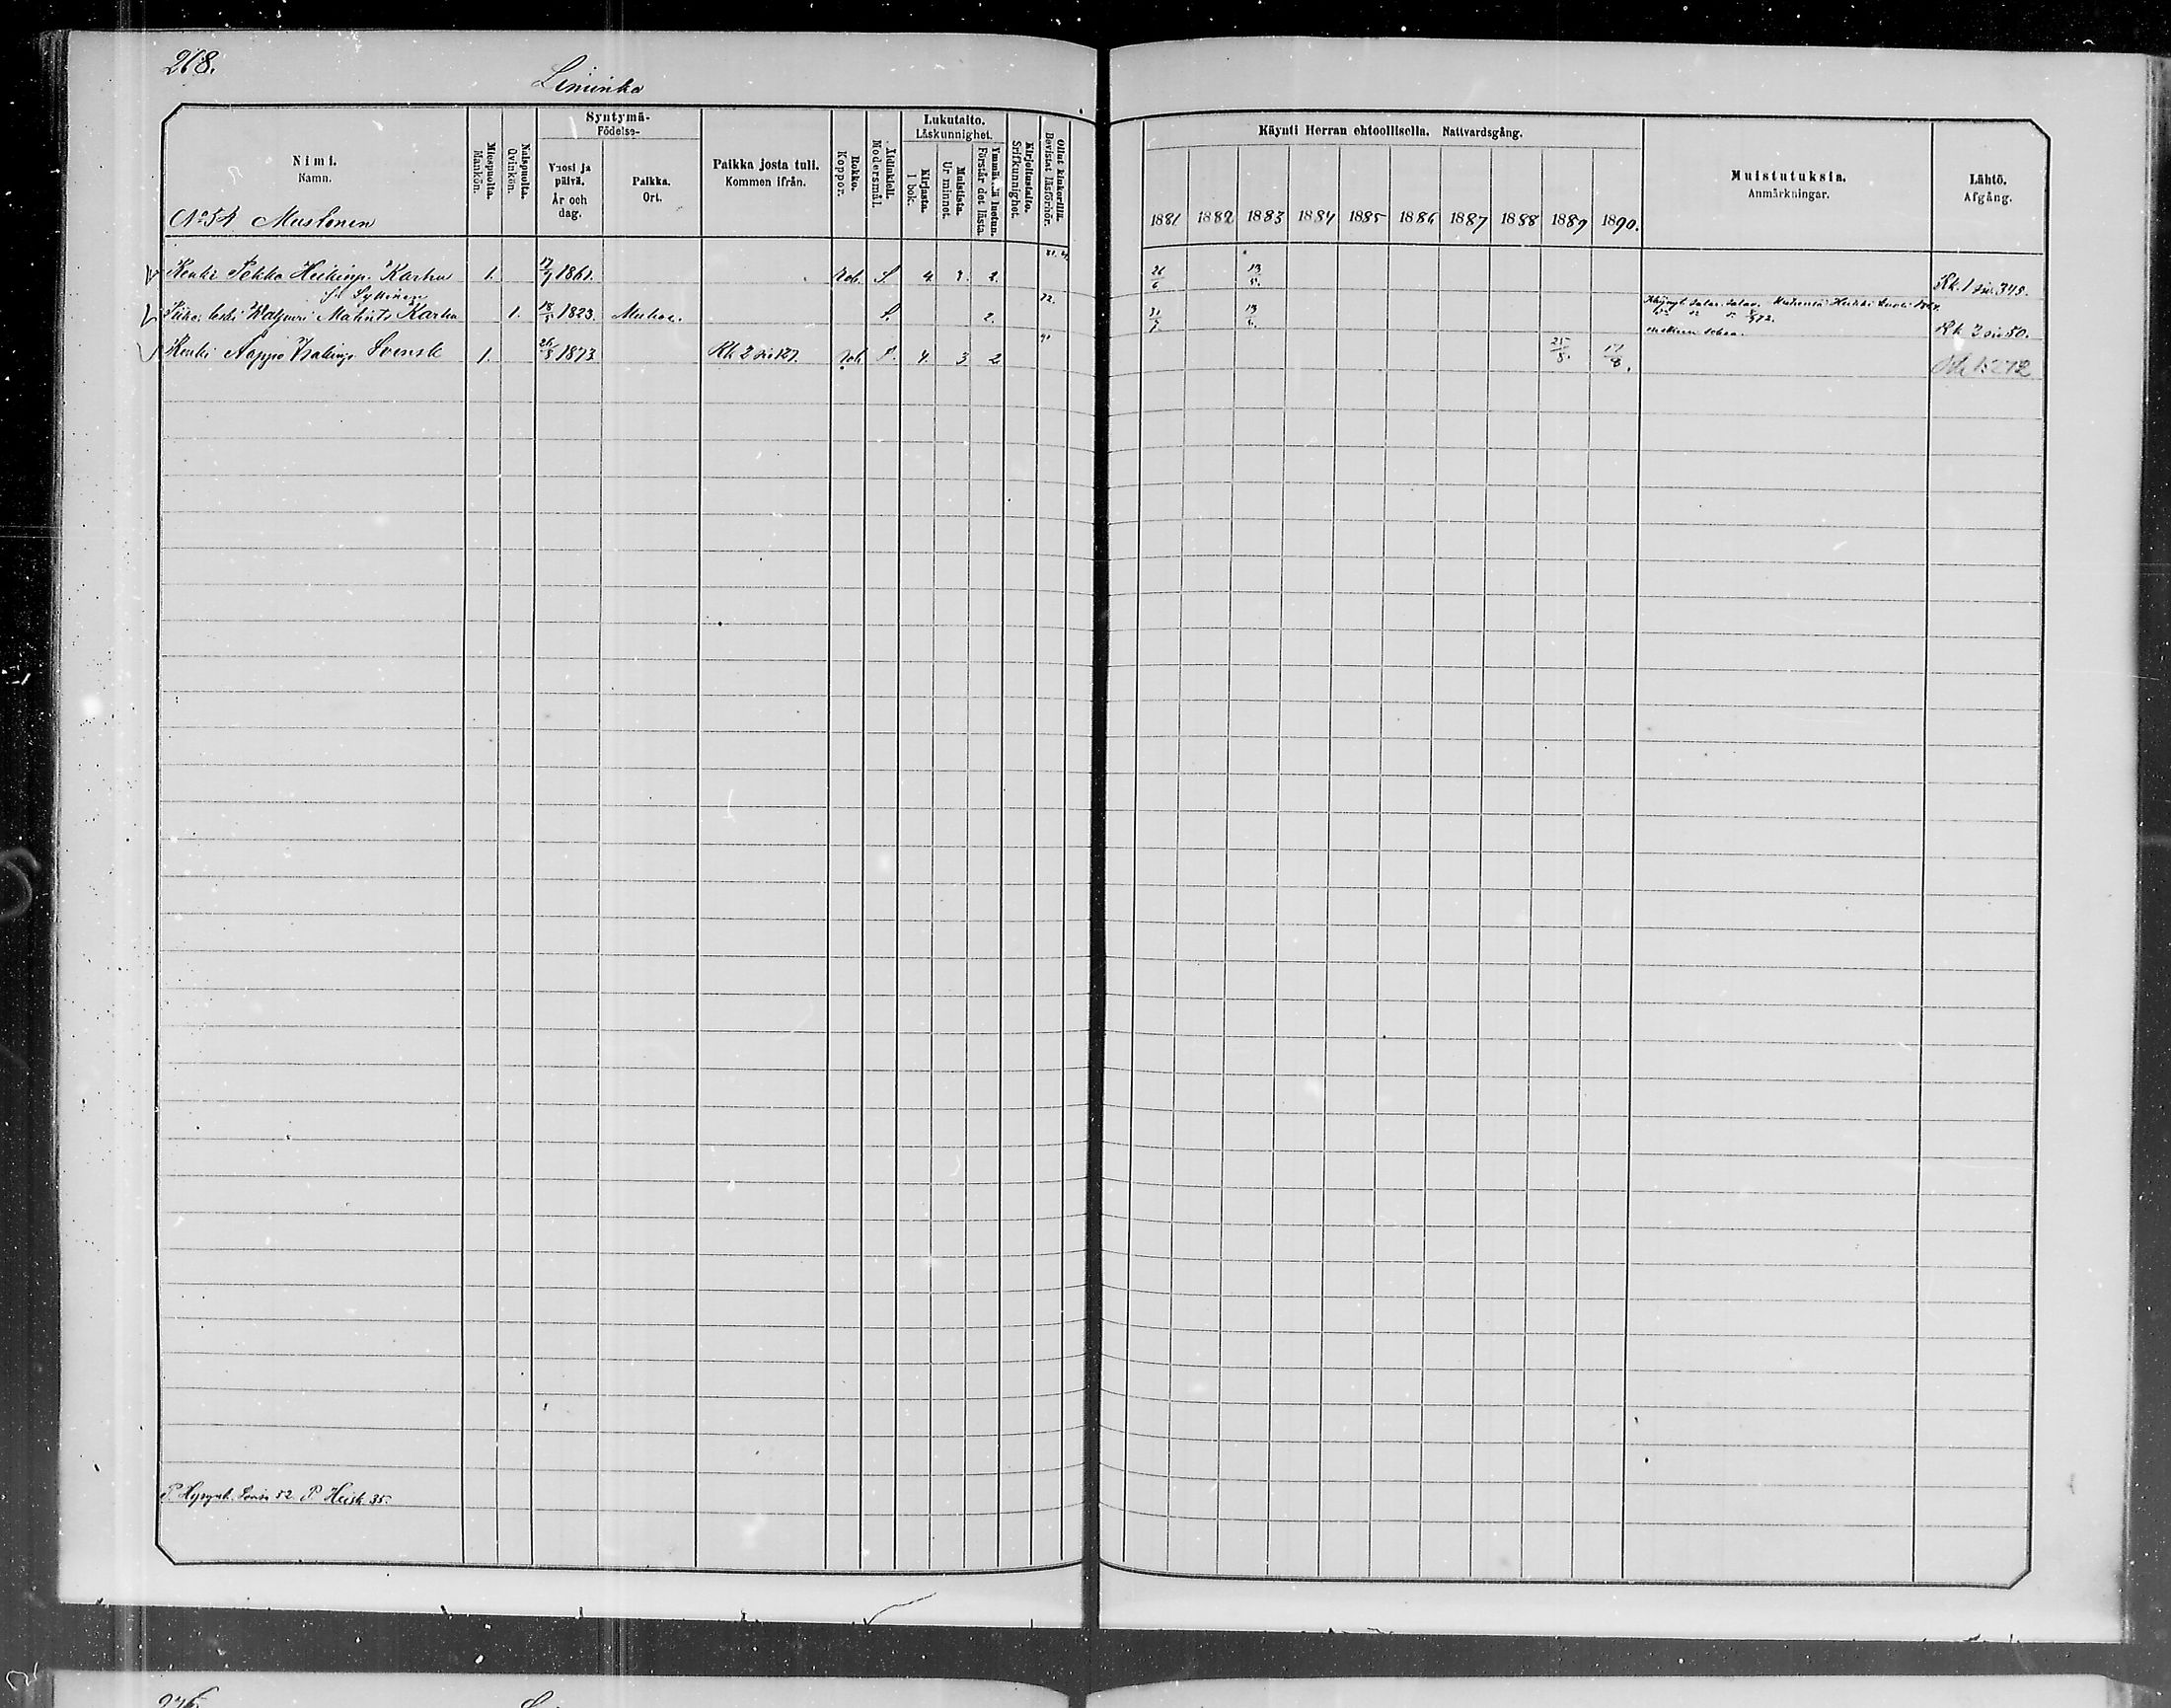 268.
Liminka
Nimi.
Namn.
Miespuolta.
Mankön.
Naispuolta.
Qvinkön.
Syntymä-
Födelse-
Vuosi ja
päivä.
År och
dag.
Paikka.
Ort.
Paikka josta tuli.
Kommen ifrån.
Rokko.
Koppor.
Äidinkieli.
Modersmål.
Lukutaito.
Läskunnighet.
Kirjasta.
I bok.
Muistista.
Ur minnet.
Ymmärtää luetun.
Förstår det lästa.
Kirjoitustaito.
Srifkunnighet.
Ollut kinkerillä.
Bevistat läsförhör.
Käynti Herran ehtoollisella. Nattvardsgång.
1881 1882 1883 1884 1885 1886 1887 1888 1889 1890.
Muistutuksia.
Anmärkningar.
Lähtö.
Afgång.
No 54 Mustonen
Renki Pekka Heikinp. Karhu 1. 17/7 1861. rok. S. 4. 2. 2. 26/6 13/5. Rk. 1 siv. 348.
leski Walpuri Matint. Karhu 1. 18/5 1823. Muhos. S. 2. 72. 31/7 13/6. Rk. 3 siv. 50.
Renki Aappo Iisakinp. Svensk 1. 26/3 1873 Rk. 2 siv. 127. rok. S. 4. 3 2 91 25/8. 17/8.
P. Heik. 35.